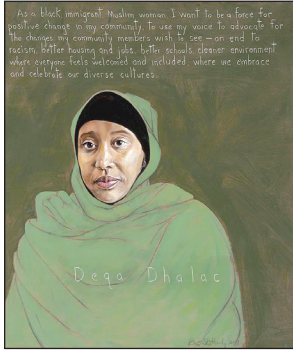 As a black immigrant Muslim woman I want to be a force for
positive change in my community, to use my voice to advocate for
the changes my community members wish to see – an end to
racism, better housing and jobs, better schools, cleaner environment
where everyone feels welcomed and included, where we embrace
and celebrate our diverse cultures.
Deqa Dhalac